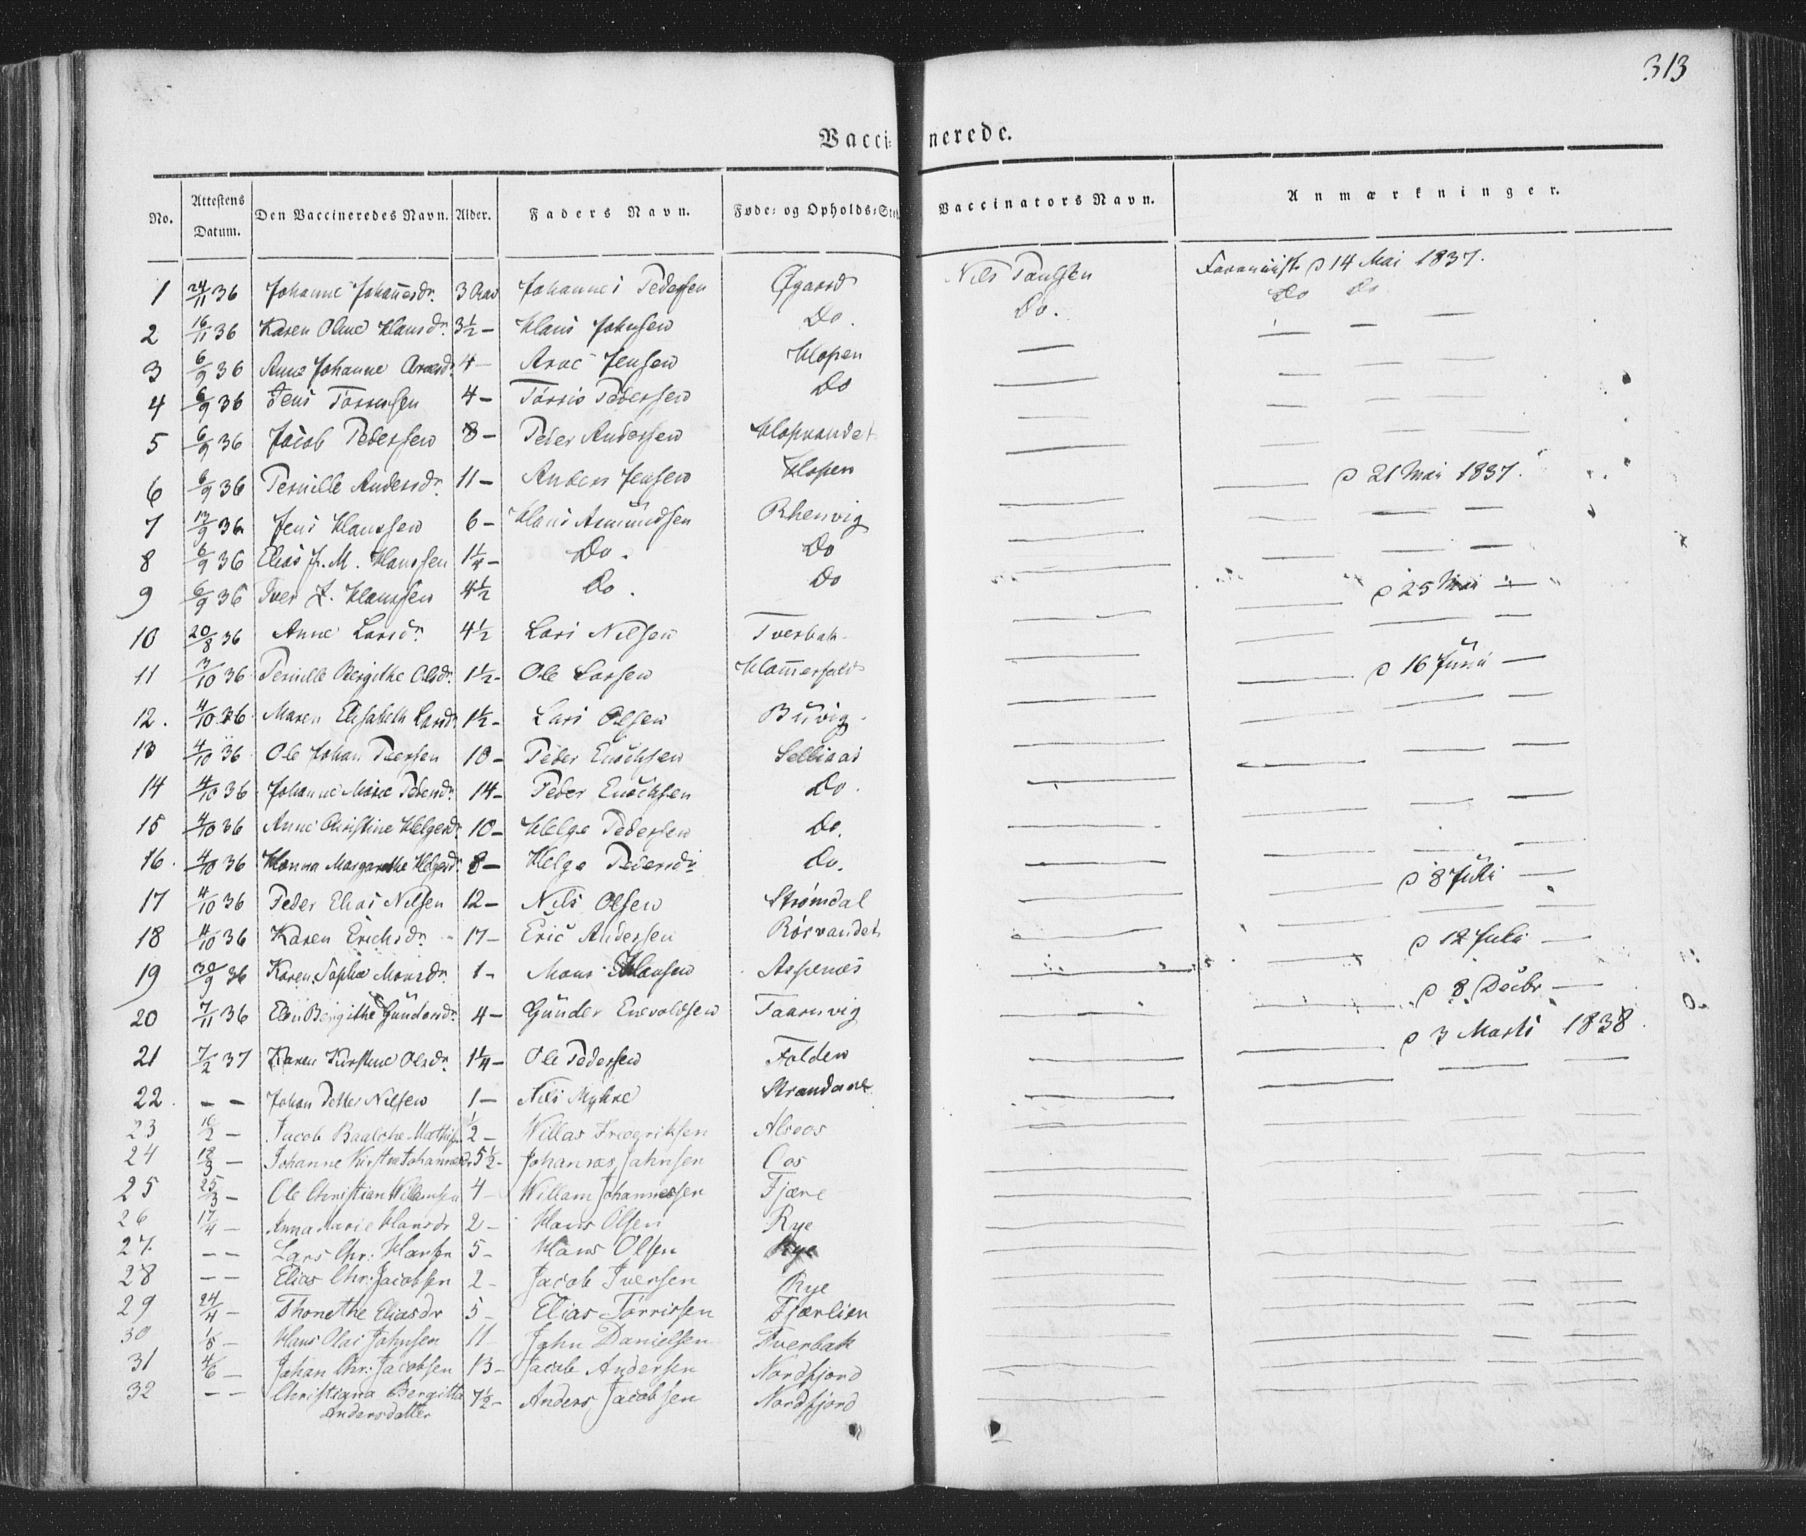 313
Vaccinerede.
No. Attestens Datum. Den Vaccineredes Navn. Alder. Faders Navn. Føde- og Opholds-Sted Vaccinators Navn. Anmærkninger.
1 24/11 36 Johanne Johannesdr. 3 Aar Johannes Pedersen Øgaard Nils Paulsen d 14 Mai 1837.
2 16/11 36 Karen Oline Hansdr. 3½ – Hans Johnsen Do. Do. Do Do
3 6/9 36 Anne Johanne 4 – Jensen Klopen — — — —
4 6/9 36 Jens Tørrisen 4 – Tørris Pedersen Do — — — —
5 6/9 36 Jacob Pedersen 8 – Peder Andersen Klopvandet — — — —
6 6/9 36 Pernille Andersdr. 11 – Anders Jensen Klopen — — — —
7 13/9 36 Jens Hanssen 6 – Hans Asmundsen Rhenvig — — d 21 Mai 1837.
8 6/9 36 Elias J. M. Hanssen 1¼ – Do. Do — — — —
9 6/9 36 Iver L. Hanssen 4½ Do. Do — — — —
10 20/8 36 Anne Larsdr. 4½ Lars Nilsen Tverbak — — d 25 Mai —
11 3/10 36 Pernille Bergithe Olsdr. 1½ – Ole Larsen Hamerfald — — — —
12. 4/10 36 Maren Elisabeth Larsdr. 1½ – Lars Olsen Buvig. — — d 16 Juni —
13 4/10 36 Ole Johan Pedersen 10 – Peder Enochsen Selbiaas — — — —
14 4/10 36 Johanne Marie Pedersdr. 14 – Peder Enochsen Do. — — — —
15 4/10 36 Anne Christine Helgesdr. 10 – Helge Pedersen Do. — — — —
16. 4/10 36 Hanna Margarethe Helgesdr. 8 – Helge Pedersdr. Do. — — — —
17 4/10 36 Peder Elias Nilsen 12 – Nils Olsen Strømdal — — d 8 Juli —
18 4/10 36 Karen Erichsdr. 17 – Eric Andersen Rørvandet — — — —
19 30/9 36 Karen Sophie Monsdr. 1 – Mons Hansen Aspenæs — — d 12 Juli —
20 7/11 36 Elen Bergithe Gundersdr. 4 – Gunder Enevoldsen Taarnvig — — d 8 Decbr —
21 7/2 37 Karen Kirstine Olsdr. 1¼ – Ole Pedersen Folden — — d 3 Marti 1838.
22. – – Johan Petter Nilsen 1 – Nils Myhre — — — —
23 16/2 – Jacob ½ – Willas Fredriksen — — — —
24 18/3 – Johanne Kirstin Johannesdr 5½ – Johannes Jahnsen Oos — — — —
25 25/3 – Ole Christian Willumsen 4 – Willam Johannessen Fjære — — — —
26 17/4 – Anna Marie Hansdr 2 – Hans Olsen Rye — — — —
27. – – Lars Chr: Hansen 5 – Hans Olsen Rye — — — —
28 – – Elias Chr: Jacobsen 2 – Jacob Iversen Rye — — — —
29 24/4 – Thonethe Eliasdr 5 – Elias Tørrissen Fjærlien — — — —
30 1/5 – Hans Olai Jahnsen 11 John Danielsen Tverbak — — — —
31 4/6 – Johan Chr: Jacobsen 13 – Jacob Andersen Nordfjord — — — —
32 – – Christiana Bergitta 7½ – Anders Jacobsen Nordfjord — — — —
Andersdatter